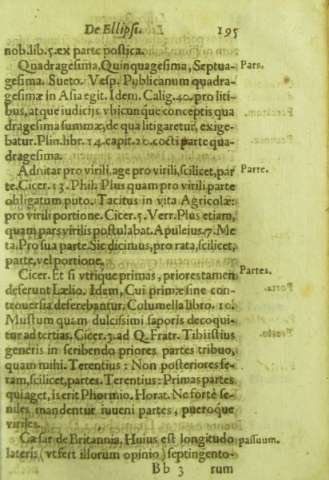 De Ellipsi. 195
nob.lib.5.ex parte postica.
Quadragesima, Quinquagesima, Septua- Pars.
gesima. Sueto. Vesp. Publicanum quadra-
gesimæ in Asia egit. Idem. Calig. 40. pro liti-
bus, atque iudicijs vbicunque conceptis qua
dragesima summæ, de qua litigaretur, exige-
batur. Plin. libr. 14. capit. 20. cocti parte qua-
dragesima.
Adnitar pro virili, age pro virili, scilicet, par Parte.
te. Cicer. 13. Phil. Plus quam pro virili parte
obligatum puto. Tacitus in vita Agricolæ:
pro virili portione. Cicer. 5. Verr. Plus etiam,
quam pars virilis postulabat. Apuleius. 7. Me
ta. Pro sua parte. Sic dicimus, pro rata, scilicet,
parte, vel portione.
Cicer. Et si vtrique primas, priores tamen Partes.
deferunt Lælio. Idem, Cui primæ sine con-
trouersia deferebantur. Columella libro. 10.
Mustum quam dulcissimi saporis decoqui-
tur ad tertias. Cicer. 3. ad Q. Fratr. Tibi istius
generis in scribendo priores partes tribuo,
quam mihi. Terentius: Non posteriores fe-
ram, scilicet, partes. Terentius: Primas partes
qui aget, is erit Phormio. Horat. Ne fortè se-
niles mandentur iuueni partes, pueroque
viriles.
Cæsar de Britannia, Huius est longitudo passuum.
lateris (vt fert illorum opinio) septingento-
Bb 3 rum